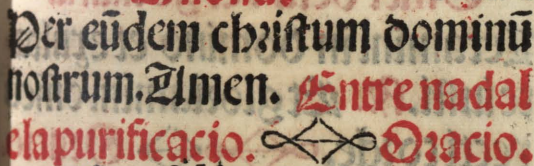 Per eūdem christum dominū
nostrum. Amen. Entre nadal
e la purificacio. Oracio.